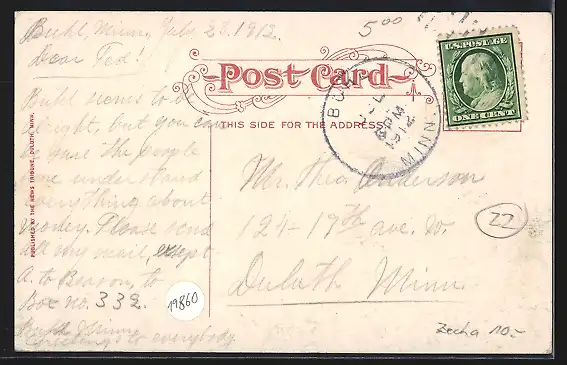 Buhl, Minn, July 23, 1912.
Dear Ted!
Buhl seems to be
alright, but you can
be sure the people
here understand
everything about
money. Please send
all my mail, except
A. to Beacon, to
Box no. 332.
Buhl Minn.
Greetings to everybody.
PUBLISHED BY THE NEWS TRIBUNE, DULUTH, MINN.
5 00
Post Card
THIS SIDE FOR THE ADDRESS
BUHL
JUL
PM
1912
MINN.
U.S. POSTAGE
ONE CENT
Mr. Theo. Anderson
124-19th ave. W.
Duluth Minn.
22
19860
10.-